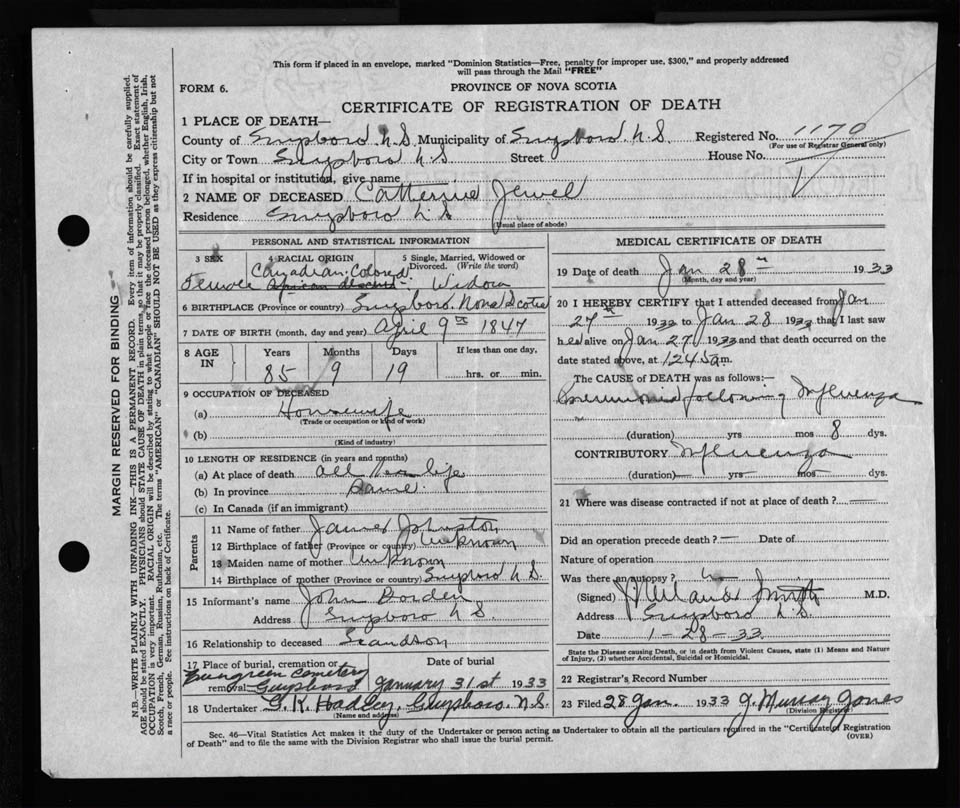 This form if placed in an envelope, marked "Dominion Statistics—Free, penalty for improper use, $300," and properly addressed
will pass through the Mail "FREE"
FORM 6. PROVINCE OF NOVA SCOTIA
CERTIFICATE OF REGISTRATION OF DEATH
1 PLACE OF DEATH—
County of Guysboro N.S. Municipality of Guysboro N.S. Registered No. 1170
(For use of Registrar General only)
City or Town Guysboro N S Street House No.
If in hospital or institution, give name
2 NAME OF DECEASED Catherine Jewel
Residence Guysboro N S
(Usual place of abode)
PERSONAL AND STATISTICAL INFORMATION
3 SEX 4 RACIAL ORIGIN 5 Single, Married, Widowed or Divorced. (Write the word)
Female Canadian Colored African descent Widow
6 BIRTHPLACE (Province or country) Guysboro. Nova Scotia
7 DATE OF BIRTH (month, day and year) April 9th 1847
8 AGE IN Years Months Days If less than one day,
85 9 19 hrs. or min.
9 OCCUPATION OF DECEASED
(a) Housewife
(Trade or occupation or kind of work)
(b)
(Kind of industry)
10 LENGTH OF RESIDENCE (in years and months)
(a) At place of death all her life
(b) In province Same.
(c) In Canada (if an immigrant)
Parents
11 Name of father James Johnston
12 Birthplace of father (Province or country) Unknown
13 Maiden name of mother Unknown
14 Birthplace of mother (Province or country) Guysboro N S.
15 Informant's name John Borden
Address Guysboro N S.
16 Relationship to deceased Grandson
17 Place of burial, cremation or removal Date of burial
Evergreen Cemetery Guysboro January 31st 1933
18 Undertaker G. K. Hadley, Guysboro, N.S.
(Name and address)
MEDICAL CERTIFICATE OF DEATH
19 Date of death Jan 28th 1933
(Month, day and year)
20 I HEREBY CERTIFY that I attended deceased from Jan
27th 1933 to Jan 28 1933 that I last saw
her alive on Jan 27 1933 and that death occurred on the
date stated above, at 12 45 a m.
The CAUSE OF DEATH was as follows:—
Pneumonia following Influenza
(duration) yrs mos 8 dys.
CONTRIBUTORY Influenza
(duration) yrs mos dys.
21 Where was disease contracted if not at place of death?
Did an operation precede death? — Date of
Nature of operation
Was there an autopsy?
(Signed) Smith M.D.
Address Guysboro N.S.
Date 1-28-33.
State the Disease causing Death, or in death from Violent Causes, state (1) Means and Nature
of Injury, (2) whether Accidental, Suicidal or Homicidal.
22 Registrar's Record Number
23 Filed 28 Jan. 1933 G. Murray Jones
(Division Registrar)
Sec. 46—Vital Statistics Act makes it the duty of the Undertaker or person acting as Undertaker to obtain all the particulars required in the "Certificate of Registration
of Death" and to file the same with the Division Registrar who shall issue the burial permit.
(OVER)
MARGIN RESERVED FOR BINDING
N.B.—WRITE PLAINLY WITH UNFADING INK—THIS IS A PERMANENT RECORD. Every item of information should be carefully supplied.
AGE should be stated EXACTLY. PHYSICIANS should STATE CAUSE OF DEATH in plain terms, so that it may be properly classified. Exact statement of
OCCUPATION is very important. RACIAL ORIGIN will be described by stating to what people or race the deceased person belonged, whether English, Irish,
Scotch, French, German, Russian, Ruthenian, etc. The terms "AMERICAN" or "CANADIAN" SHOULD NOT BE USED as they express citizenship but not
a race or people. See instructions on back of Certificate.